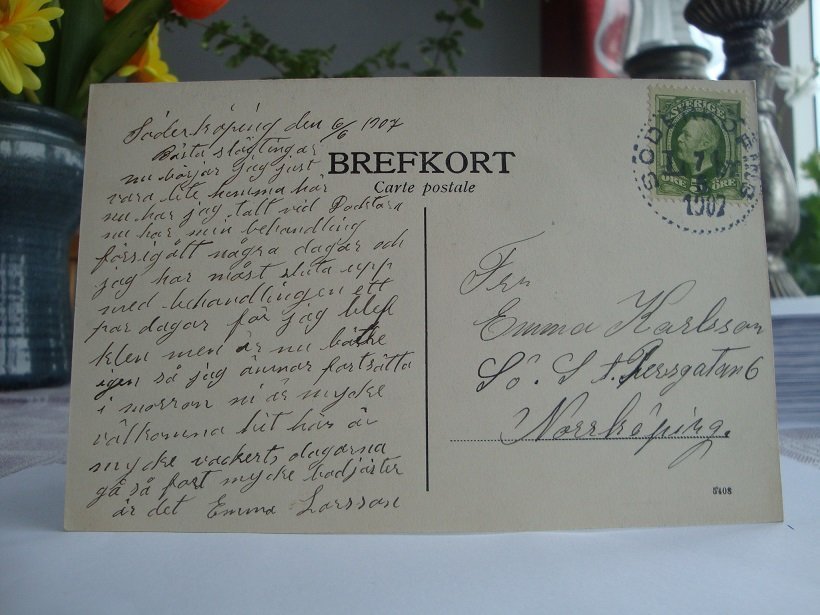 Söderköping den 6/6 1907
Bästa slägtingar
nu börjar jag just
vara lite hemma här
nu har jag talt vid Docktorn
nu har min behandling
försigått några dagar och
jag har måst sluta upp
med behandlingen ett
par dagar for jag blef
klen men är nu bättre
igen så jag ämnar fortsätta
i morron ni är mycke
välkomna hit här är
mycke vackert dagarna
gå så fort mycke badjäster
är det Emma Larsson
BREFKORT
Carte postale
SVERIGE
SÖDERKÖPING
1907
ÖRE ÖRE
Fru
Emma Karlsson
Sö. S:t Persgatan 6
Norrköping.
5408